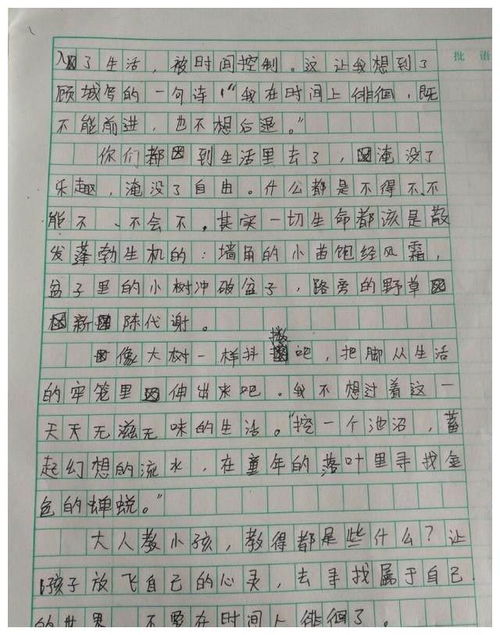 批语
入了生活，被时间控制。这让我想到了
顾城写的一句诗：“我在时间上徘徊，既
不能前进，也不想后退。”
你们都到生活里去了，淹没了
乐趣，淹没了自由。什么都是不得不、不
能不、不会不。其实一切生命都该是散
发蓬勃生机的：墙角的小苗饱经风霜，
盆子里的小树冲破盆子，路旁的野草
新陈代谢。
像大树一样抖擞吧，把脚从生活
的牢笼里伸出来吧。我不想过着这一
天天无滋无味的生活。“挖一个池沼，蓄
起幻想的流水，在童年的落叶里寻找金
色的蝉蜕。”
大人教小孩，教得都是些什么？让
孩子放飞自己的心灵，去寻找属于自己
的世界，不要在时间上徘徊了。